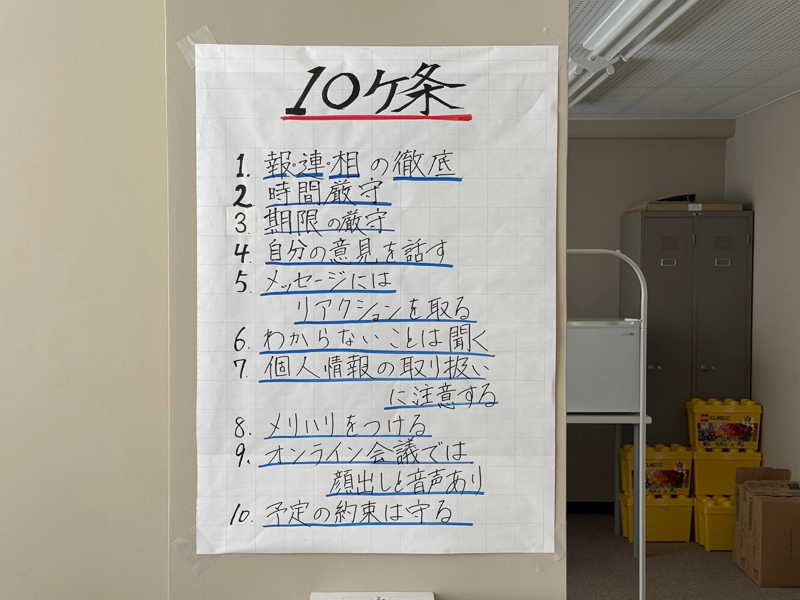 10ケ条
1. 報・連・相の徹底
2. 時間厳守
3. 期限の厳守
4. 自分の意見を話す
5. メッセージには
リアクションを取る
6. わからないことは聞く
7. 個人情報の取り扱い
に注意する
8. メリハリをつける
9. オンライン会議では
顔出しと音声あり
10. 予定の約束は守る
LEGO CLASSIC
LEGO CLASSIC